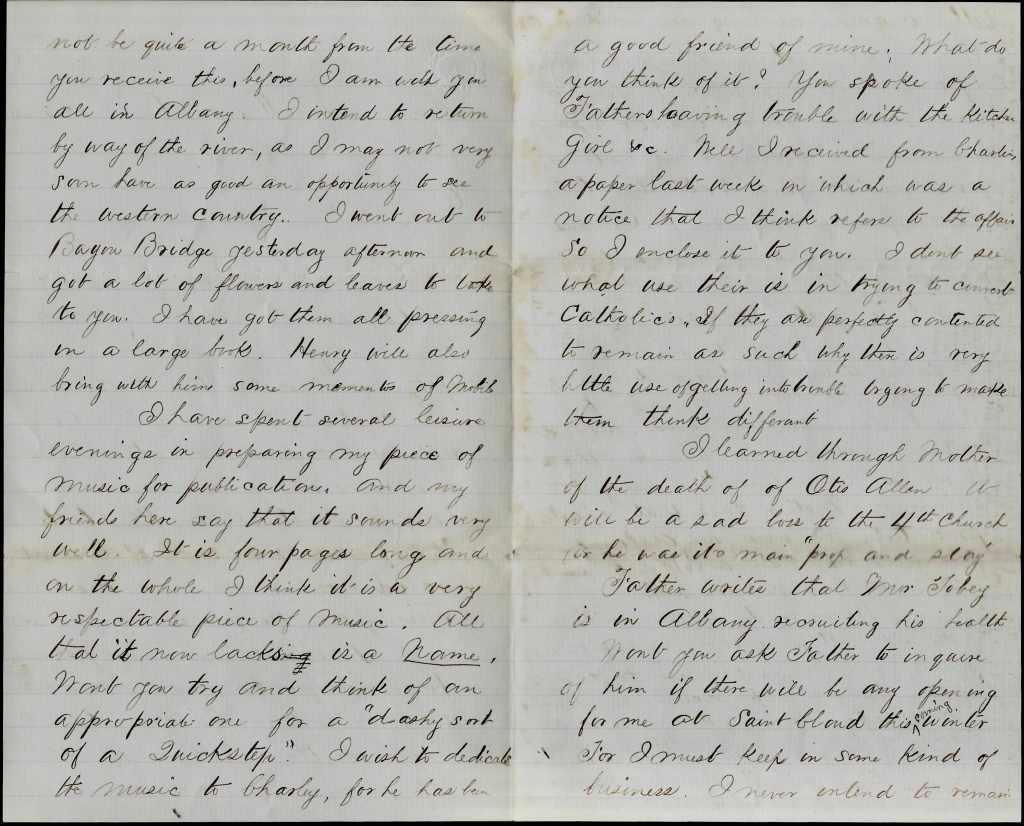 not be quite a month from the time
you receive this, before I am with you
all in Albany. I intend to return
by way of the river, as I may not very
soon have as good an opportunity to see
the western country. I went out to
Bayou Bridge yesterday afternoon and
got a lot of flowers and leaves to take
to you. I have got them all pressing
in a large book. Henry will also
bring with him some mementos of Mobile
I have spent several leisure
evenings in preparing my piece of
music for publication. And my
friends here say that it sounds very
well. It is four pages long and
on the whole I think it is a very
respectable piece of Music. All
that it now lacksing is a Name.
Wont you try and think of an
appropriate one for a "dashy sort
of a Quickstep". I wish to dedicate
the music to Charley, for he has been
a good friend of mine. What do
you think of it? You spoke of
Fathers having trouble with the Kitchen
Girl &c. Well I received from Charley
a paper last week in which was a
notice that I think refers to the affair
So I enclose it to you. I dont see
what use their is in trying to convert
Catholics. If they are perfectly contented
to remain as such why there is very
little use of getting into trouble trying to make
them think differant
I learned through Mother
of the death of of Otis Allen it
will be a sad loss to the 4th Church
for he was its main "prop and stay"
Father writes that Mr Tobey
is in Albany recruiting his health
Wont you ask Father to inquire
of him if there will be any opening
for me at Saint Cloud this coming winter
For I must keep in some kind of
business. I never intend to remain